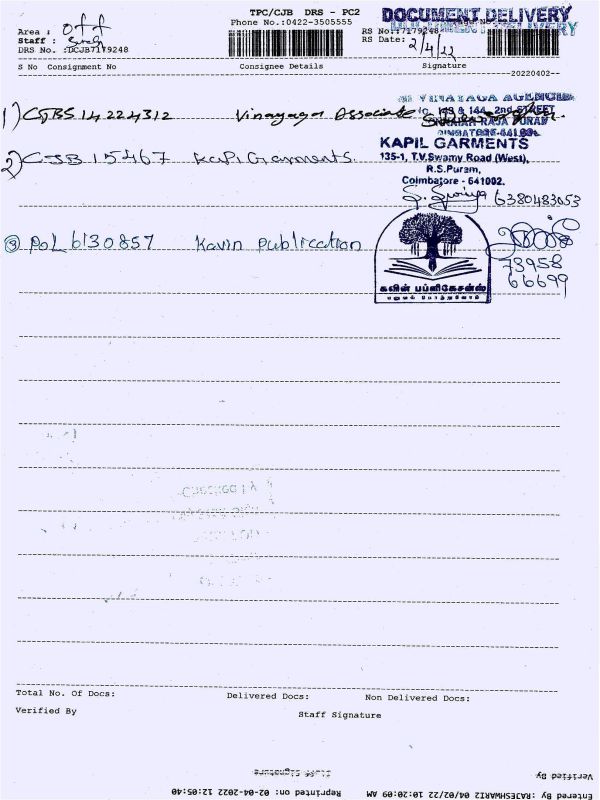 TPC/CJB DRS - PC2
DOCUMENT DELIVERY
Phone No.:0422-3505555
Area : Off
Staff :
DRS No. :DCJB7179248
RS No.:7179248
RS Date: 2/4/22
S No Consignment No Consignee Details Signature
20220402
1) CJBS 14224312 Vinayaga Associate
VINAYAGA AGENCIES
143 & 144, 2nd STREET
RAJA PURAM
2) CJB 15467 Kapil Garments.
KAPIL GARMENTS
135-1, T.V.Swamy Road (West),
R.S.Puram,
Coimbatore - 641002.
6380483053
3 POL 6130857 Kavin Publication
73958
66699
கவின் பப்ளிகேசன்ஸ்
Total No. Of Docs: Delivered Docs: Non Delivered Docs:
Verified By Staff Signature
Staff Signature Verified By
Entered By: RAJESHWARI2 04/02/22 10:20:09 AM Reprinted on: 02-04-2022 12:05:40